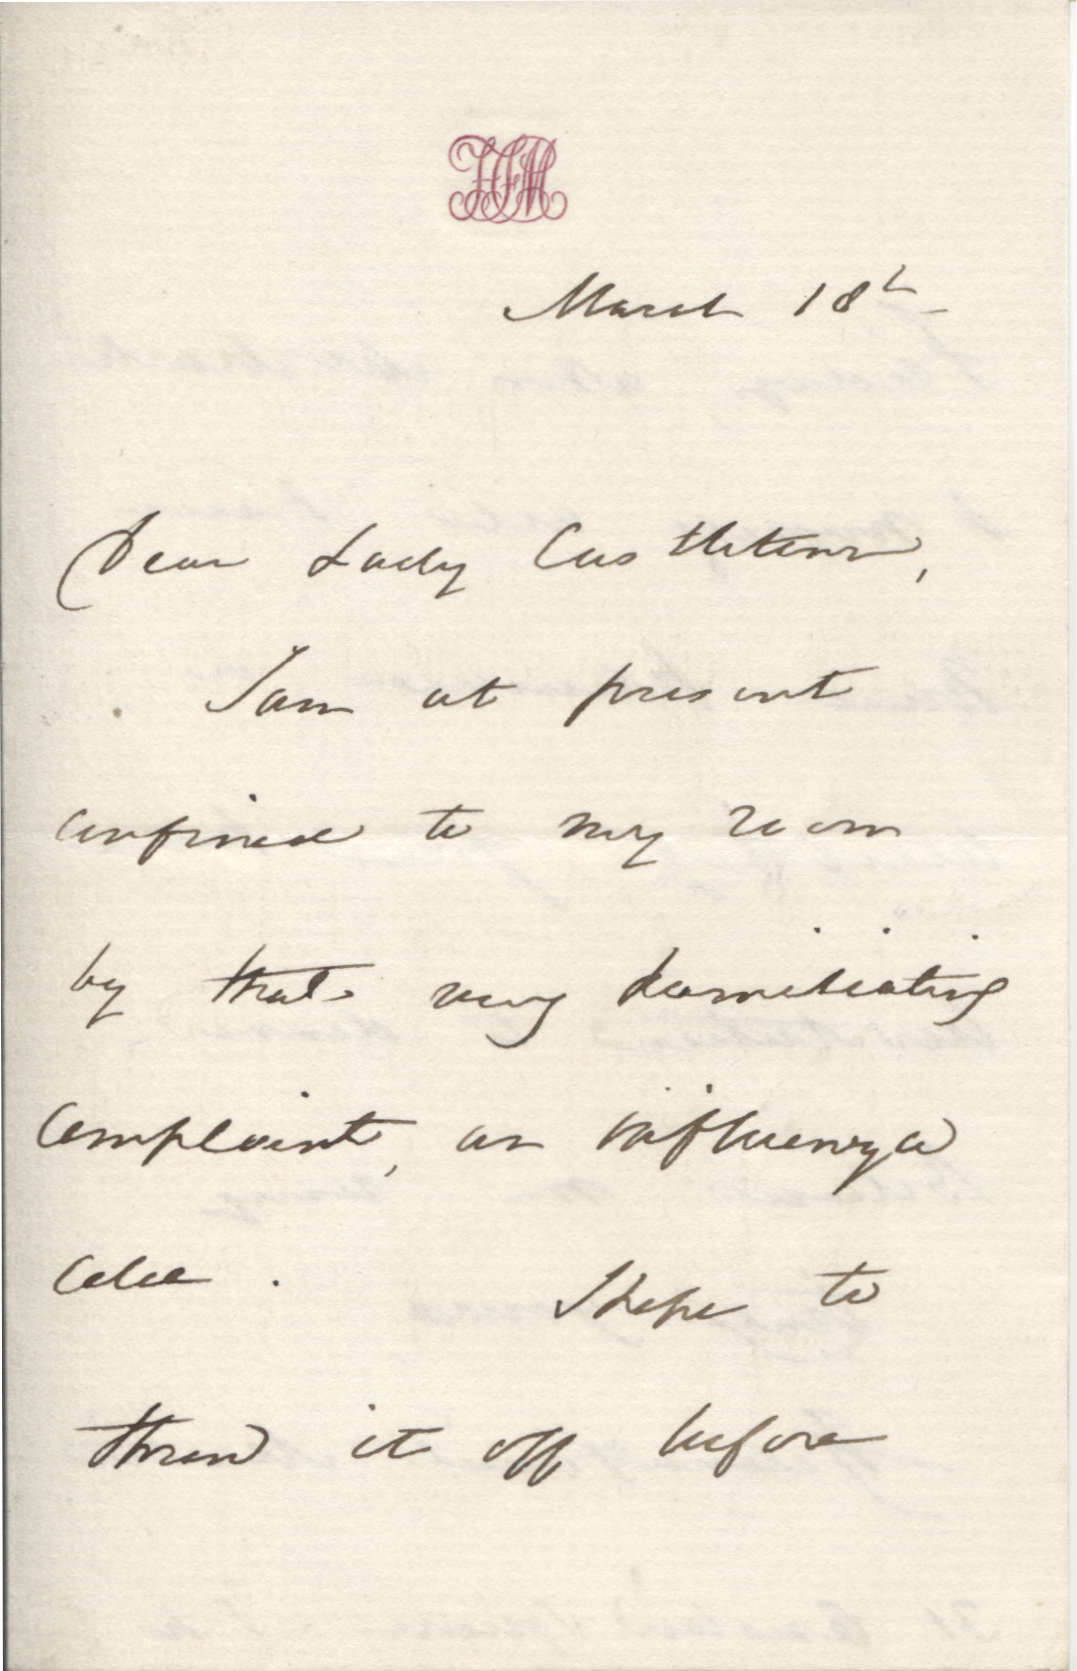 March 18th
Dear Lady Castletown,
I am at present
confined to my room
by that very humiliating
complaint, an influenza
cold. I hope to
throw it off before